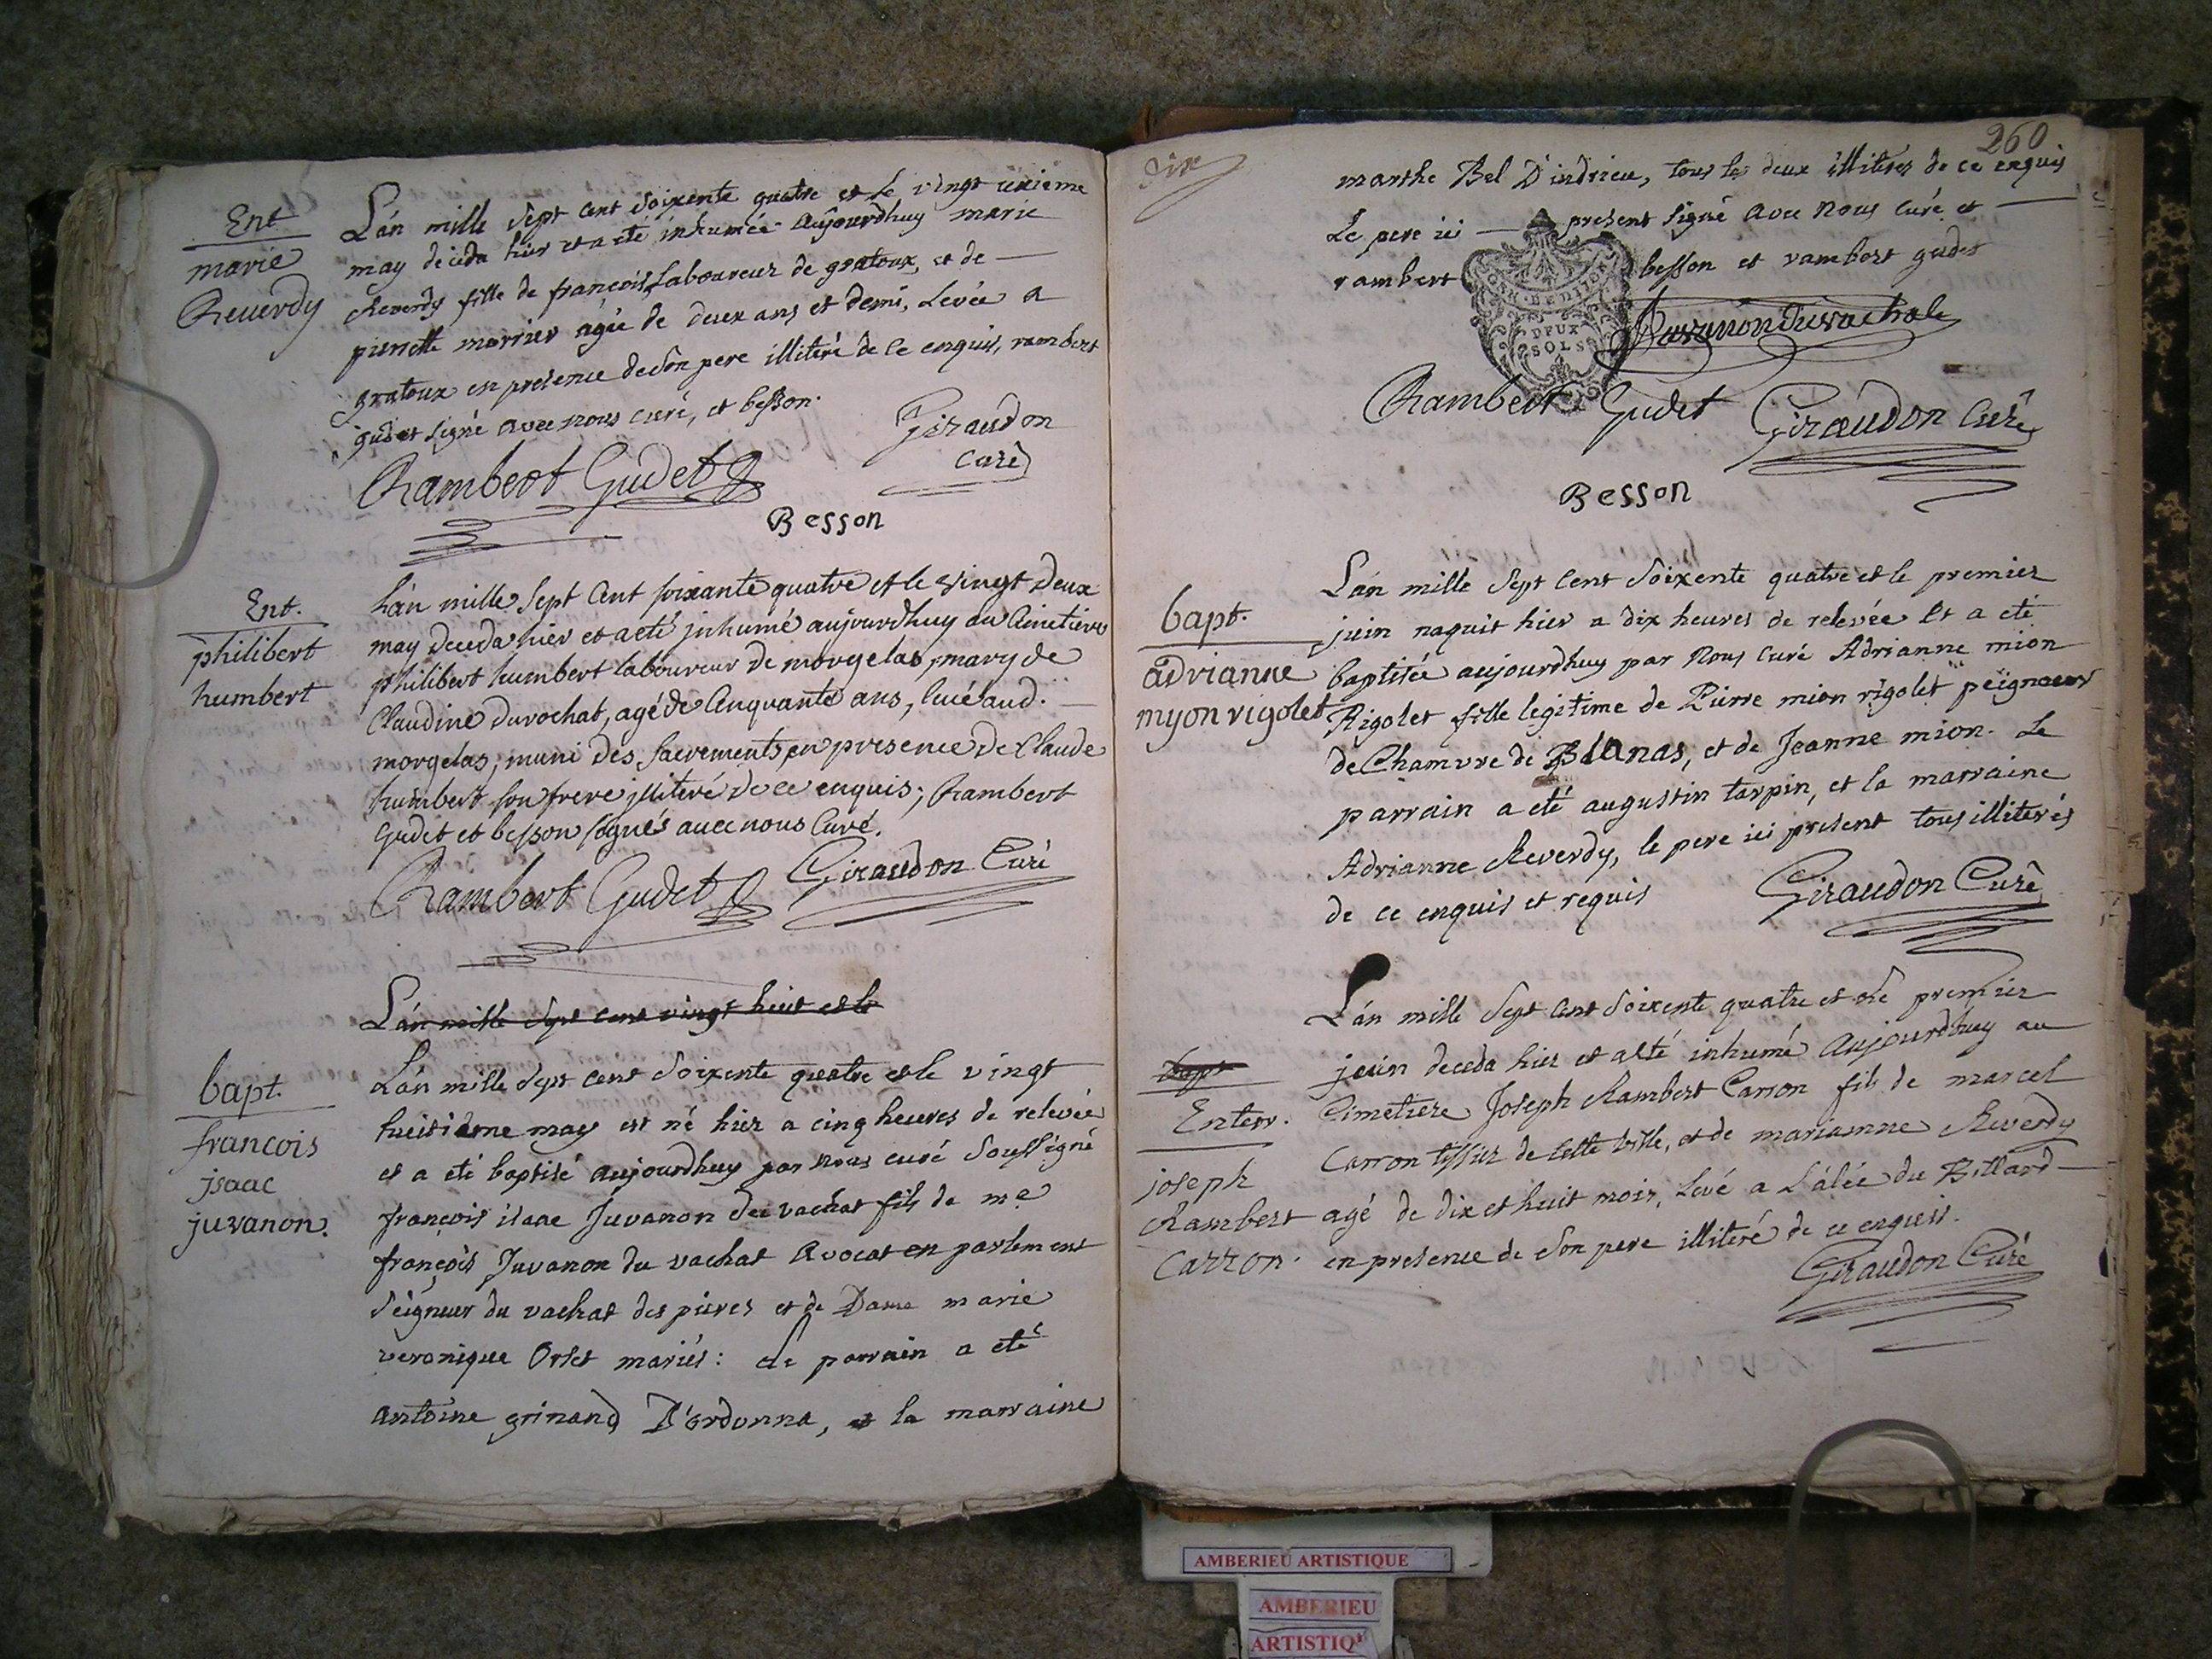 Ent
marie
Reuerdy
L'an mille Sept Cent Soixente quatre et le vingt unieme
may deceda hier et a eté inhumée aujourdhuy marie
Reverdy fille de francois, laboureur de gratoux, et de
pierrette marrier agée de deux ans et demi, Levée a
gratoux en presence de Son pere illiteré de ce enquis, rambert
gudet signé avec nous curé, et besson.
Giraudon
curé
Rambert Gudet
Besson
Ent.
philibert
humbert
L'an mille Sept Cent soixante quatre et le vingt deux
may deceda hier et a eté inhumé aujourdhuy au Cimetiere
philibert humbert laboureur de morgelas, mary de
Claudine durochat, agé de Cinquante ans, levé aud.
morgelas, muni des Sacrements en presence de Claude
humbert son frere illiteré de ce enquis; Rambert
Gudet et besson signés avec nous Curé.
Rambert Gudet Giraudon Curé
L'an mille Sept cent vingt huit et le
bapt.
francois
jsaac
juvanon.
L'an mille Sept cent Soixente quatre et le vingt
huitieme may est né hier a cinq heures de relevée
et a eté baptisé aujourdhuy par nous curé Soussigné
françois isaac Juvanon du vachat fils de me
françois Juvanon du vachat Avocat en parlement
Seigneur du vachat des pieres et de Dame marie
veronique Orset mariés: Le parrain a eté
antoine grinand D'ordonna, et la marraine
260
dix
marthe Bel D'indrieu, tous les deux illiterés de ce enquis
Le pere ici present Signé avec nous curé et
rambert besson et rambert gudet
DEUX
SOLS
Juvanon Duvachat
Rambert Gudet Giraudon Curé
Besson
bapt.
adrianne
myon rigolet
L'an mille Sept Cent Soixente quatre et le premier
juin naquit hier a dix heures de relevée et a eté
baptisée aujourdhuy par nous curé Adrianne mion
Rigolet fille legitime de Pierre mion rigolet peigneur
de Chamvre de Blanas, et de Jeanne mion. Le
parrain a eté augustin tarpin, et la marraine
Adrianne Reverdy, le pere ici present tous illiterés
de ce enquis et requis Giraudon Curé
bapt
Enterr.
joseph
Rambert
Carron.
L'an mille Sept Cent Soixente quatre et Le premier
juin deceda hier et a eté inhumé Aujourdhuy au
Cimetiere Joseph Rambert Carron fils de marcel
Carron tissier de Cette ville, et de marianne Reverdy
agé de dix et huit mois, Levé a L'alée du Billard
en presence de Son pere illiteré de ce enquis.
Giraudon Curé
AMBERIEU ARTISTIQUE
AMBERIEU
ARTISTIQ